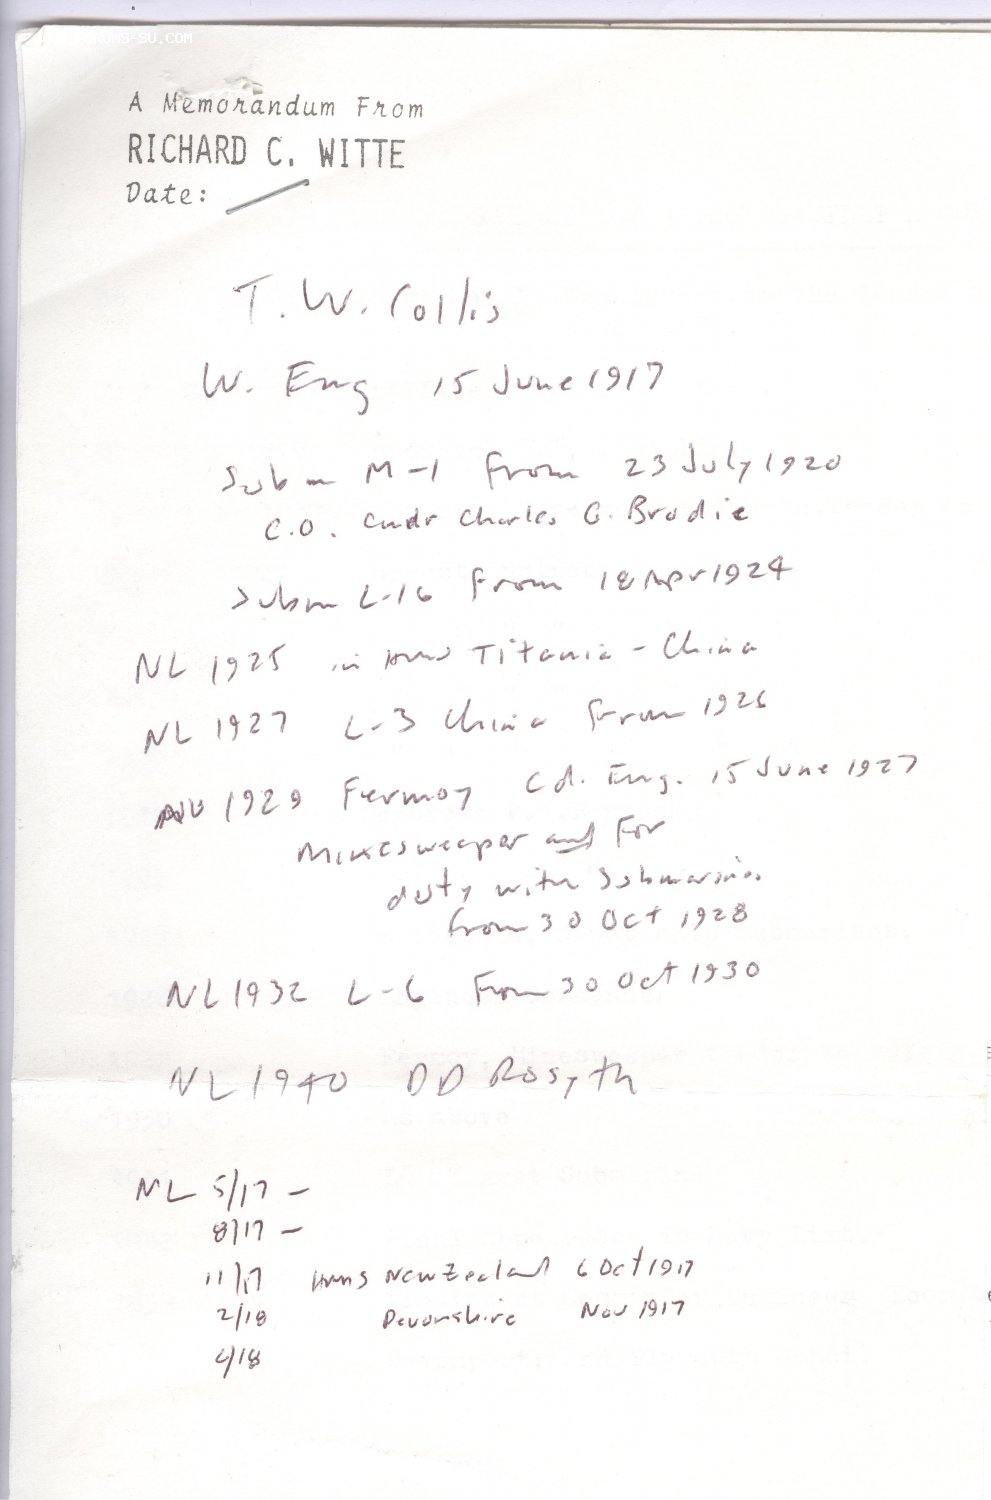 UMS-SU.COM
A Memorandum From
RICHARD C. WITTE
Date:
T. W. Collis
W. Eng 15 June 1917
Subm M-1 From 23 July 1920
C.O. Cmdr Charles G. Brodie
Subm L-16 From 18 Apr 1924
NL 1925 in HMS Titania - China
NL 1927 L-3 China From 1926
NL 1929 Fermoy Cd. Eng. 15 June 1927
Minesweeper and For
duty with Submarines
from 30 Oct 1928
NL 1932 L-6 From 30 Oct 1930
NL 1940 DD Rosyth
NL 5/17 -
8/17 -
11/17 HMS New Zealand 6 Oct 1917
2/18 Devonshire Nov 1917
4/18